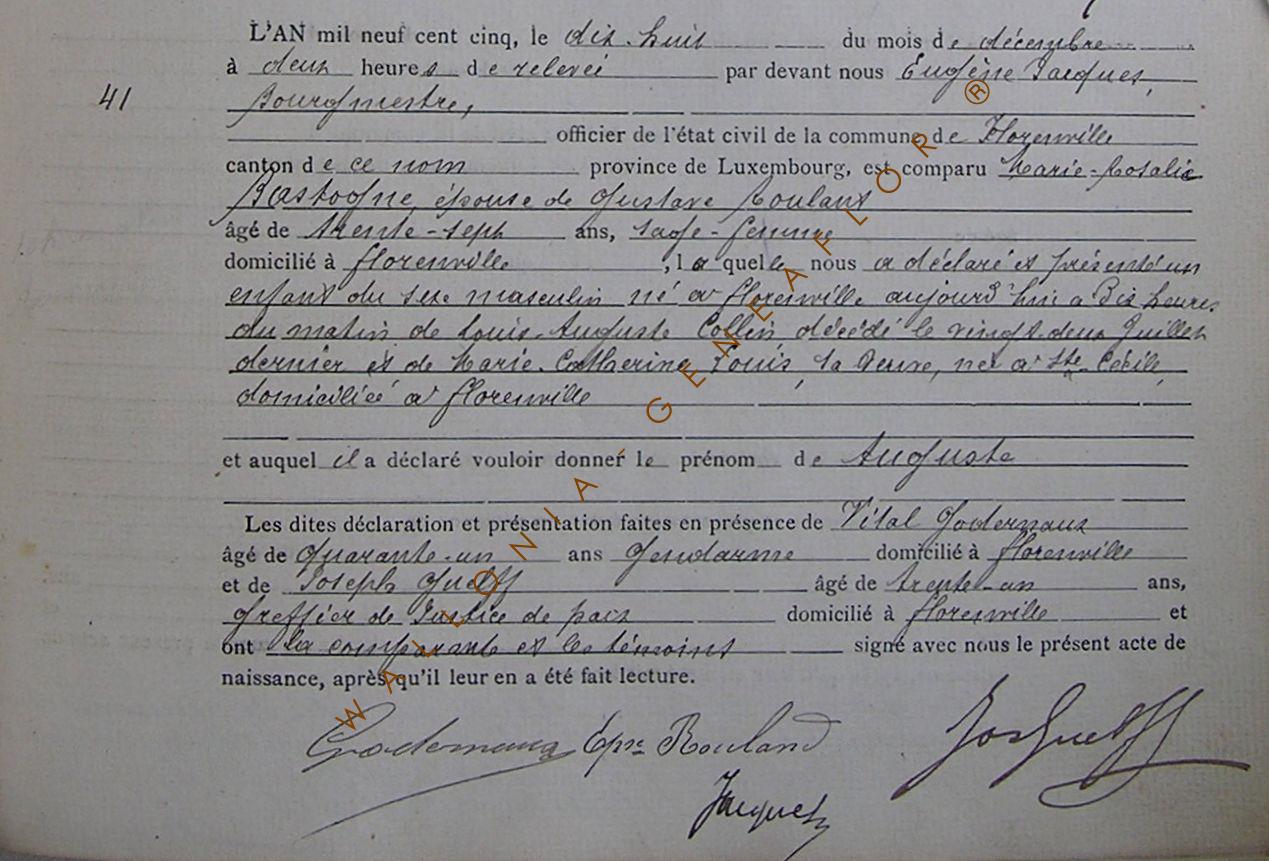 L'AN mil neuf cent cinq, le dix-huit du mois de décembre
à deux heures de relevée par devant nous Eugène Jacques,
41
Bourgmestre,
officier de l'état civil de la commune de Florenville
canton de ce nom province de Luxembourg, est comparu Marie-Rosalie
Bastogne, épouse de Gustave Roulant
âgé de trente-sept ans, sage-femme
domicilié à Florenville, laquelle nous a déclaré et présenté un
enfant du sexe masculin né à Florenville aujourd'hui à Dix heures
du matin de Louis-Auguste Collin, décédé le vingt-deux Juillet
dernier et de Marie-Catherine Louis, sa veuve, née à Ste Cécile,
domiciliée à Florenville
et auquel il a déclaré vouloir donner le prénom de Auguste
Les dites déclaration et présentation faites en présence de Vital Godernaux
âgé de quarante-un ans Gendarme domicilié à Florenville
et de Joseph Guelff âgé de trente-un ans,
greffier de Justice de paix domicilié à Florenville et
ont la comparante et les témoins signé avec nous le présent acte de
naissance, après qu'il leur en a été fait lecture.
Godernaux Epse Rouland Jos Guelff
Jacques
WALLONIA GENEAFLOR ®